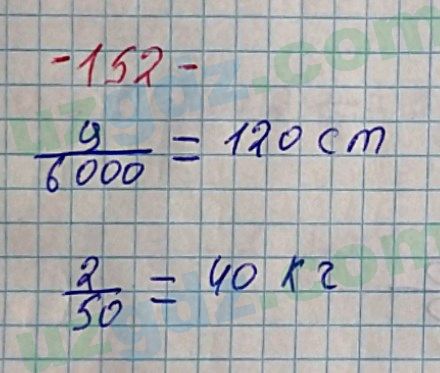 -152-
9/6000 = 120 cm
2/50 = 40 кг
uzgdz.com
uzgdz.com
uzgdz.com